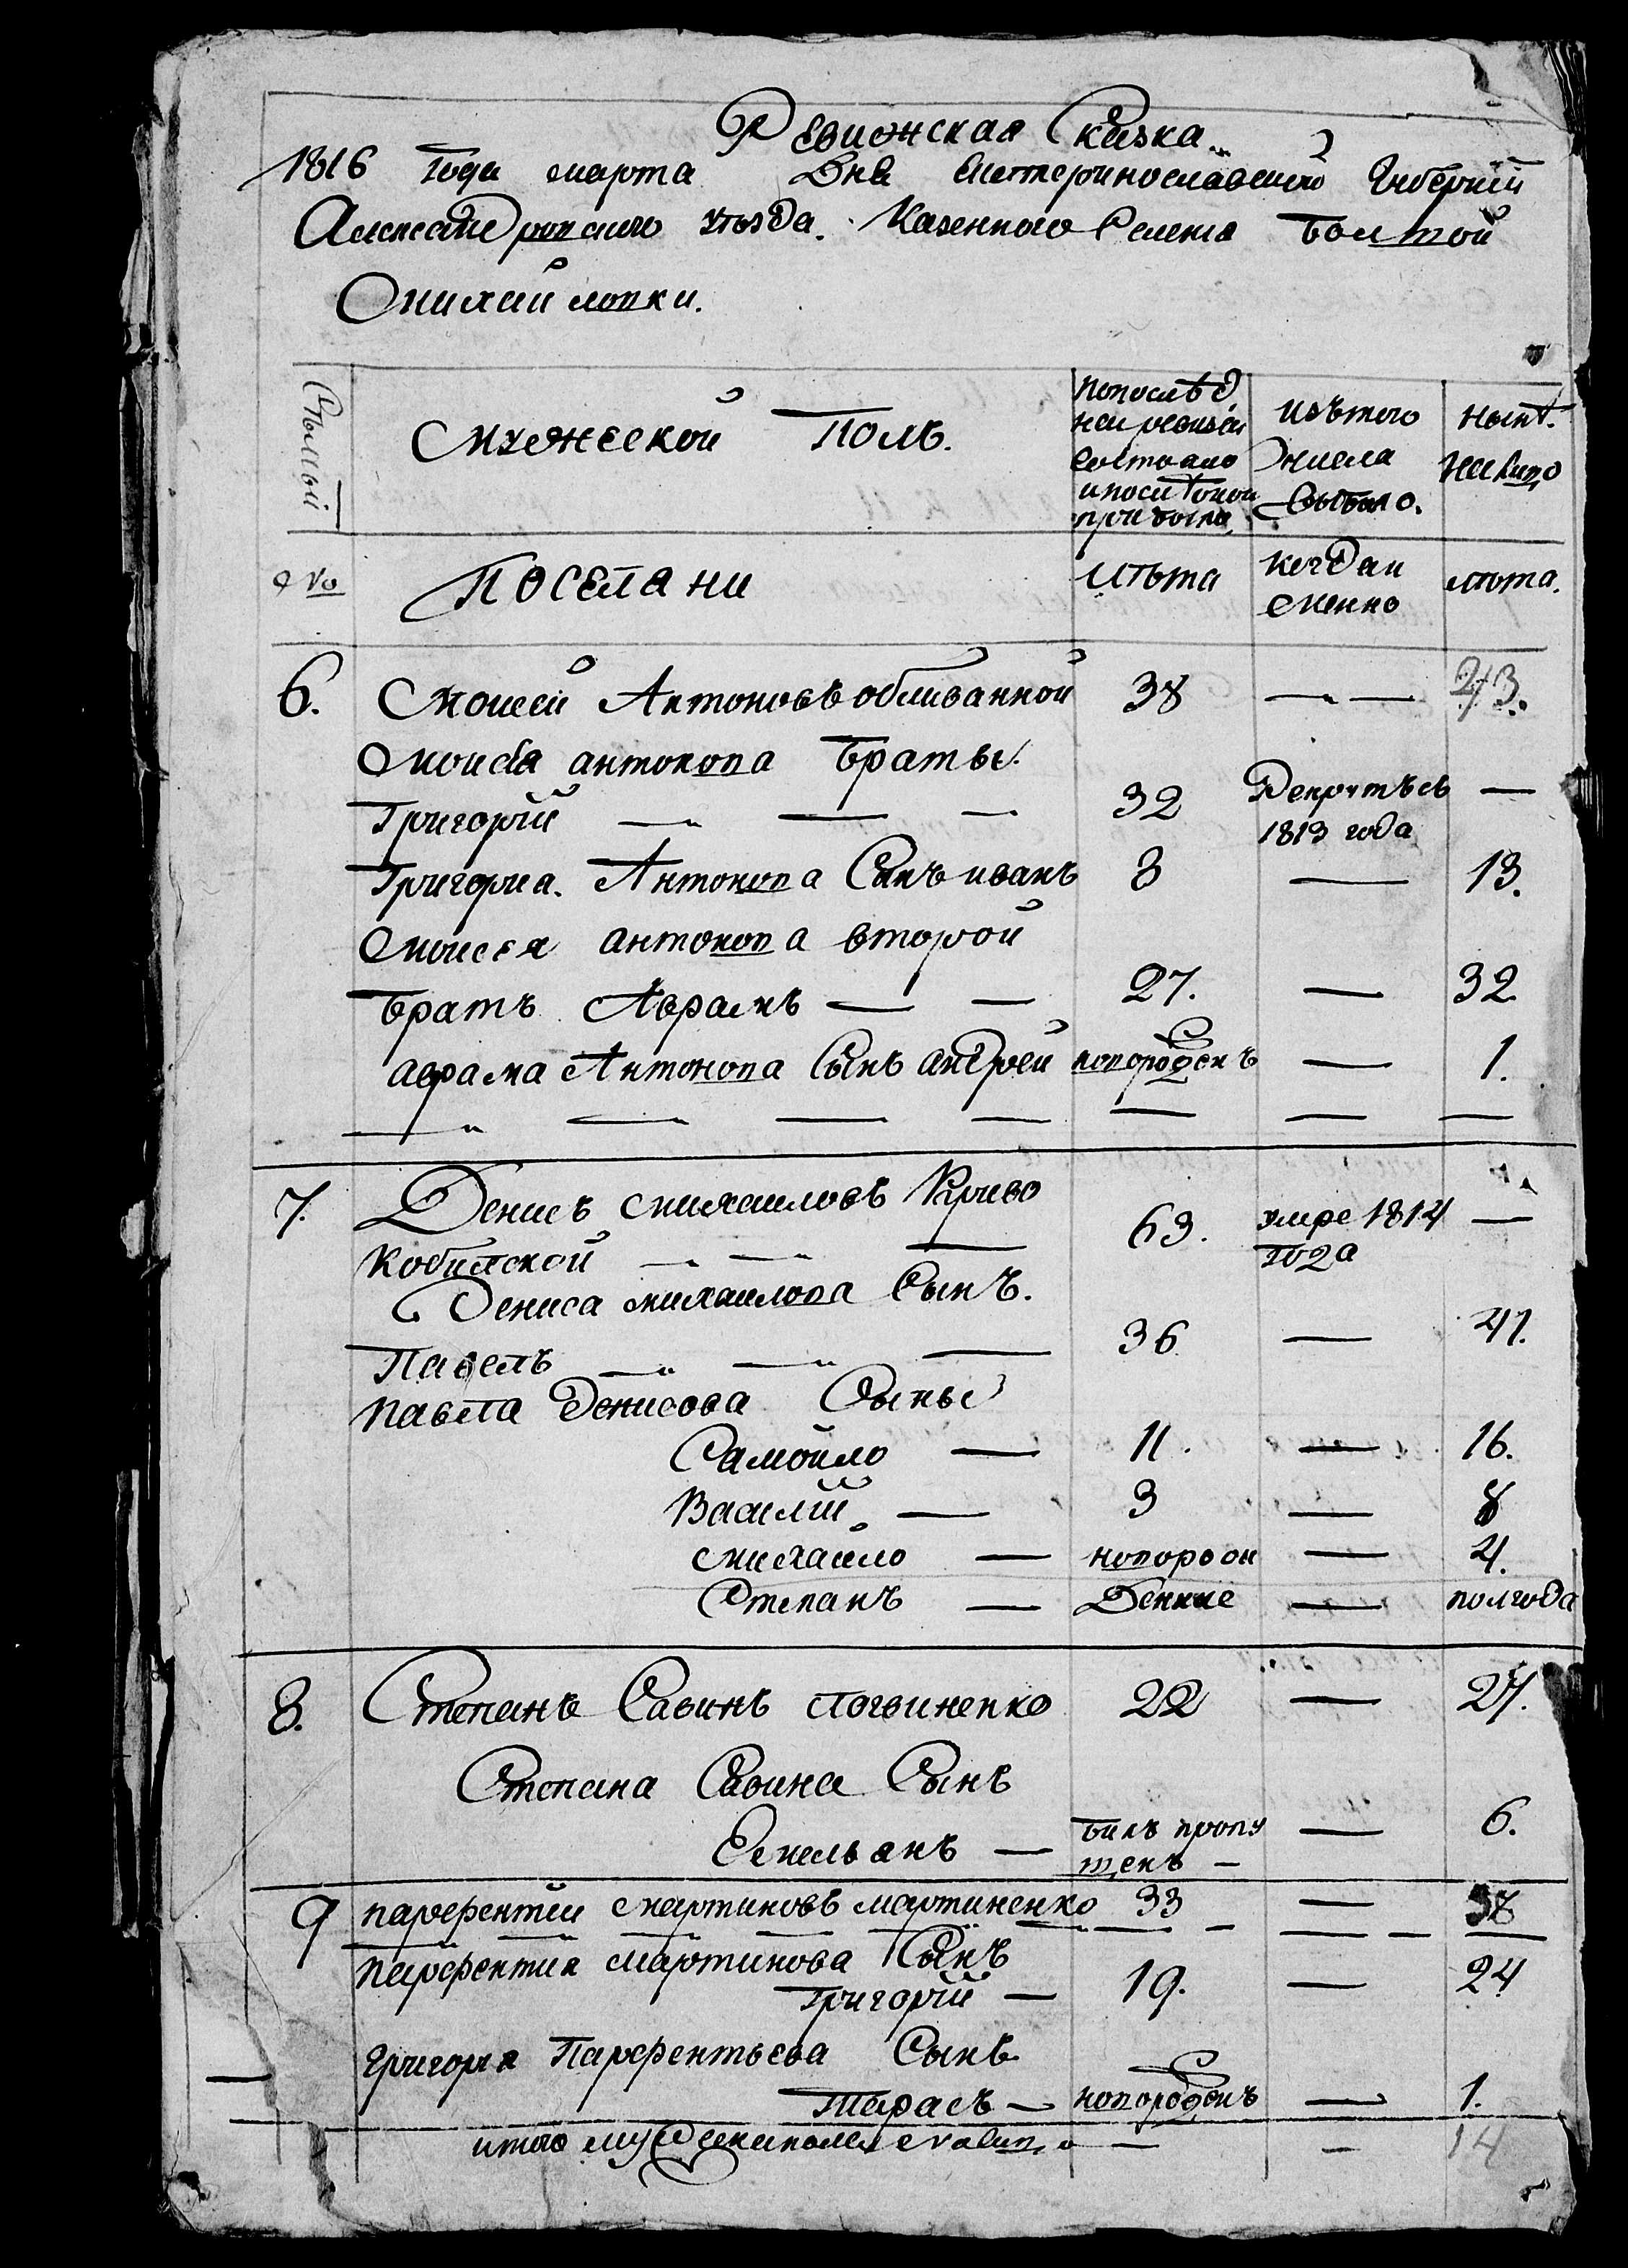 Ревижская Сказка.
1816 года марта Дня Екатеринославской Губерніи
Александровского уѣзда. Казенного Селения Болшой
Михайловки.
Семьи Мужеской Полъ. Попослѣд ней ревизіи состояло и после оной прибыло Изъ того числа выбыло. Нынѣ. На лицо
№ Поселяни Лѣта Когда и менно лѣта.
6. Моисей Антоновъ обливанной 38 — 43.
Моисѣя антонова братье.
Григорій — — — 32 Рекрутъсъ —
1813 года
Григориа. Антонова Сынъ иванъ 8 — 13.
Моисея антонова второй
братъ Аврамъ — — 27. — 32.
аврама Антонова Сынъ андрей новорожденъ — 1.
— — — — — — —
7. Денисъ михаиловъ Криво 63. умре 1814 —
Кобилской — — — года
Дениса михаилова Сынъ.
Павелъ — — — 36 — 41.
павла Денисова Сынье
Самойло — 11. — 16.
Василій — 3 — 8
михаило — новорож — 4.
Степанъ — Денние — полгода
8. Степанъ Савинъ логвиненко 22 — 27.
Степана Савина Сынъ
Емельянъ — билъ пропу — 6.
щенъ —
9 парфентій мартиновъ мартиненко 33 — 38
парфентия мартинова Сынъ
Григорій — 19. — 24
григория Парфентьева Сынъ
Тарасъ — новорожденъ — 1.
итого мужеска пола на лицо — — 14